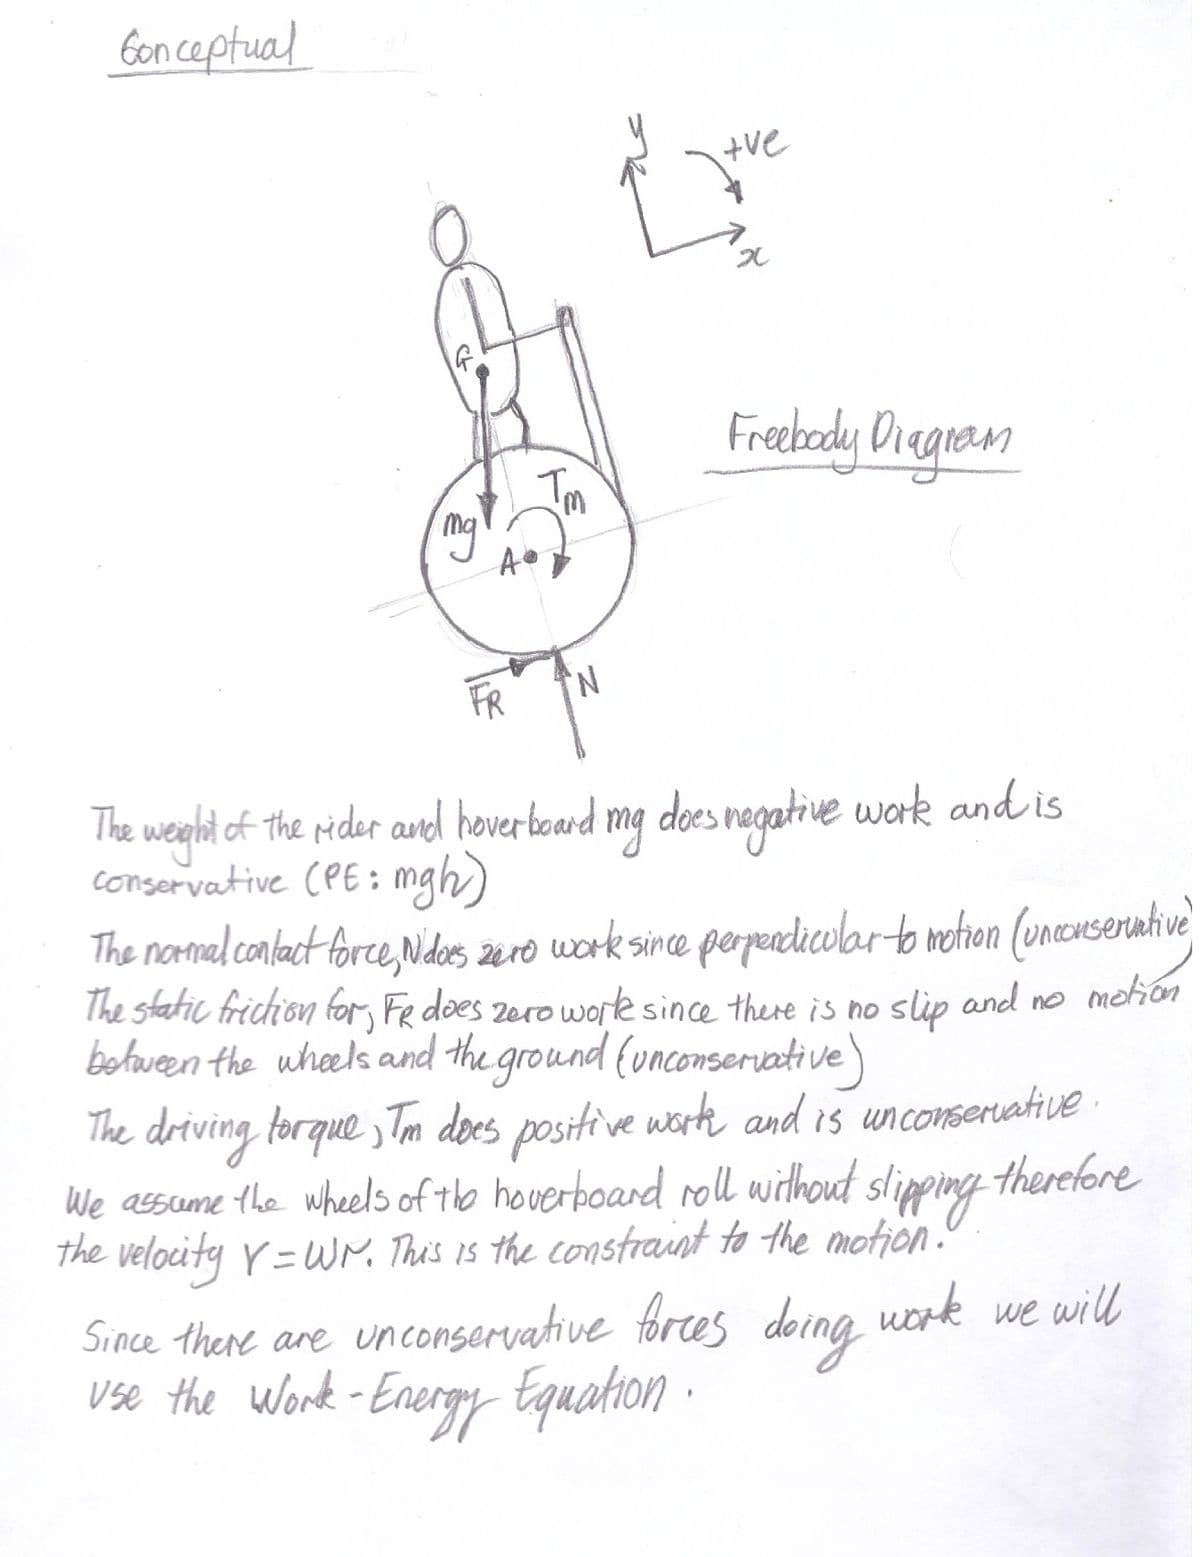 Conceptual
y
+ve
x
G
Freebody Diagram
Tm
mg
A
FR
N
The weight of the rider and hoverboard mg does negative work and is
conservative (PE: mgh)
The normal contact force, N does zero work since perpendicular to motion (unconservative)
The static friction for, FR does zero work since there is no slip and no motion
between the wheels and the ground (unconservative)
The driving torque, Tm does positive work and is unconservative.
We assume the wheels of the hoverboard roll without slipping therefore
the velocity V=Wr. This is the constraint to the motion.
Since there are unconservative forces doing work we will
use the Work-Energy Equation.